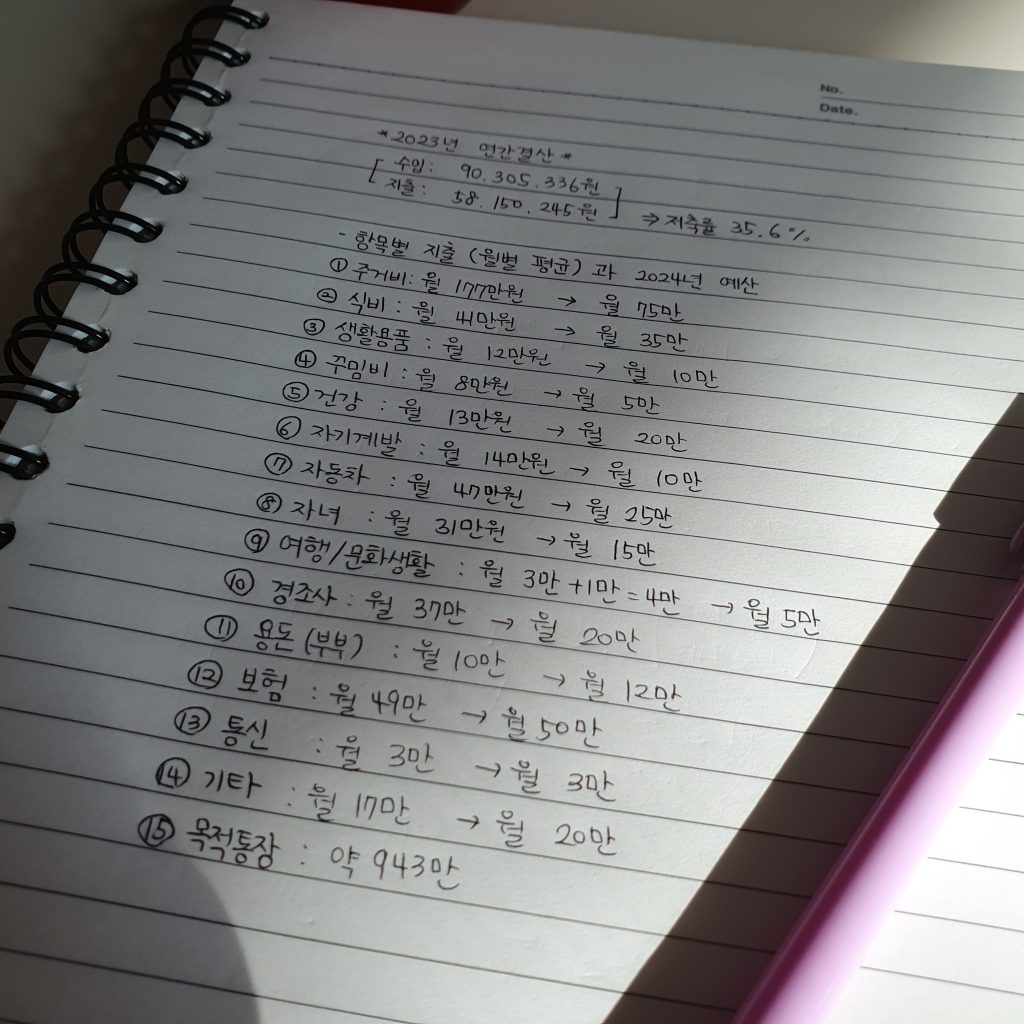 No.
Date.
*2023년 연간결산*
[ 수입: 90.305.336원
지출: 58.150.245원 ] ⇒ 저축률 35.6%
- 항목별 지출 (월별 평균) 과 2024년 예산
① 주거비: 월 177만원 → 월 75만
② 식비: 월 41만원 → 월 35만
③ 생활용품: 월 12만원 → 월 10만
④ 꾸밈비: 월 8만원 → 월 5만
⑤ 건강: 월 13만원 → 월 20만
⑥ 자기계발: 월 14만원 → 월 10만
⑦ 자동차: 월 47만원 → 월 25만
⑧ 자녀: 월 31만원 → 월 15만
⑨ 여행/문화생활: 월 3만+1만=4만 → 월 5만
⑩ 경조사: 월 37만 → 월 20만
⑪ 용돈(부부): 월 10만 → 월 12만
⑫ 보험: 월 49만 → 월 50만
⑬ 통신: 월 3만 → 월 3만
⑭ 기타: 월 17만 → 월 20만
⑮ 목적통장: 약 943만